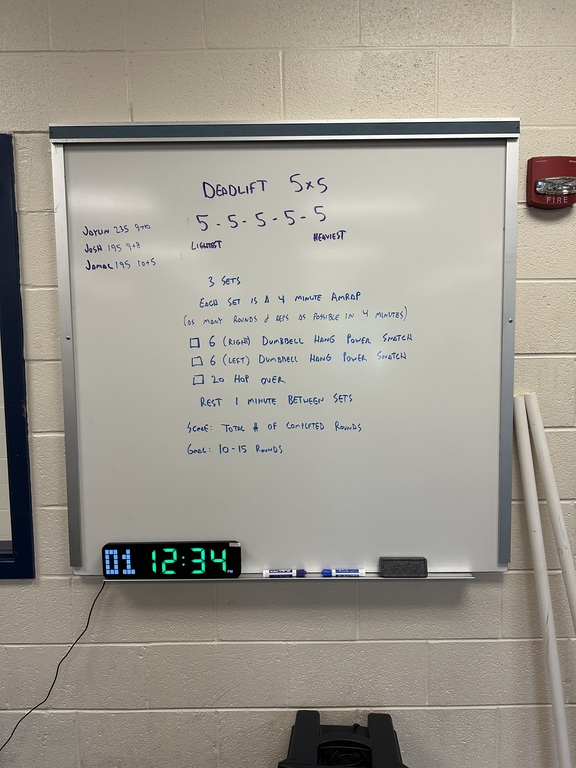 DEADLIFT 5x5
5 - 5 - 5 - 5 - 5
LIGHTEST HEAVIEST
235 9+10
JOSH 195 9+8
JAMAL 195 10+5
3 SETS
EACH SET IS A 4 MINUTE AMRAP
(AS MANY ROUNDS & REPS AS POSSIBLE IN 4 MINUTES)
6 (RIGHT) DUMBBELL HANG POWER SNATCH
6 (LEFT) DUMBBELL HANG POWER SNATCH
20 HOP OVER
REST 1 MINUTE BETWEEN SETS
SCORE: TOTAL # OF COMPLETED ROUNDS
GOAL: 10-15 ROUNDS
FIRE
01 12:34
PM